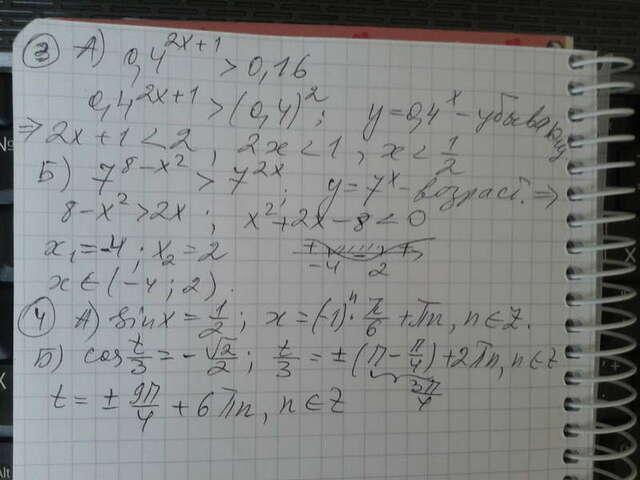 ③ А) 0,4^{2x+1} > 0,16
0,4^{2x+1} > (0,4)^2 ; y = 0,4^x - убывающ
⇒ 2x+1 < 2 , 2x < 1 , x < 1/2
Б) 7^{8-x^2} > 7^{2x} ; y = 7^x - возраст. ⇒
8-x^2 > 2x ; x^2+2x-8 < 0
x_1 = -4 ; x_2 = 2 + - +
-4 2
x ∈ (-4 ; 2) .
④ А) sin x = 1/2 ; x = (-1)^n · π/6 + πn, n ∈ Z.
Б) cos t/3 = -√2/2 ; t/3 = ±(π - π/4) + 2πn, n ∈ Z
3π/4
t = ± 9π/4 + 6πn, n ∈ Z
Alt